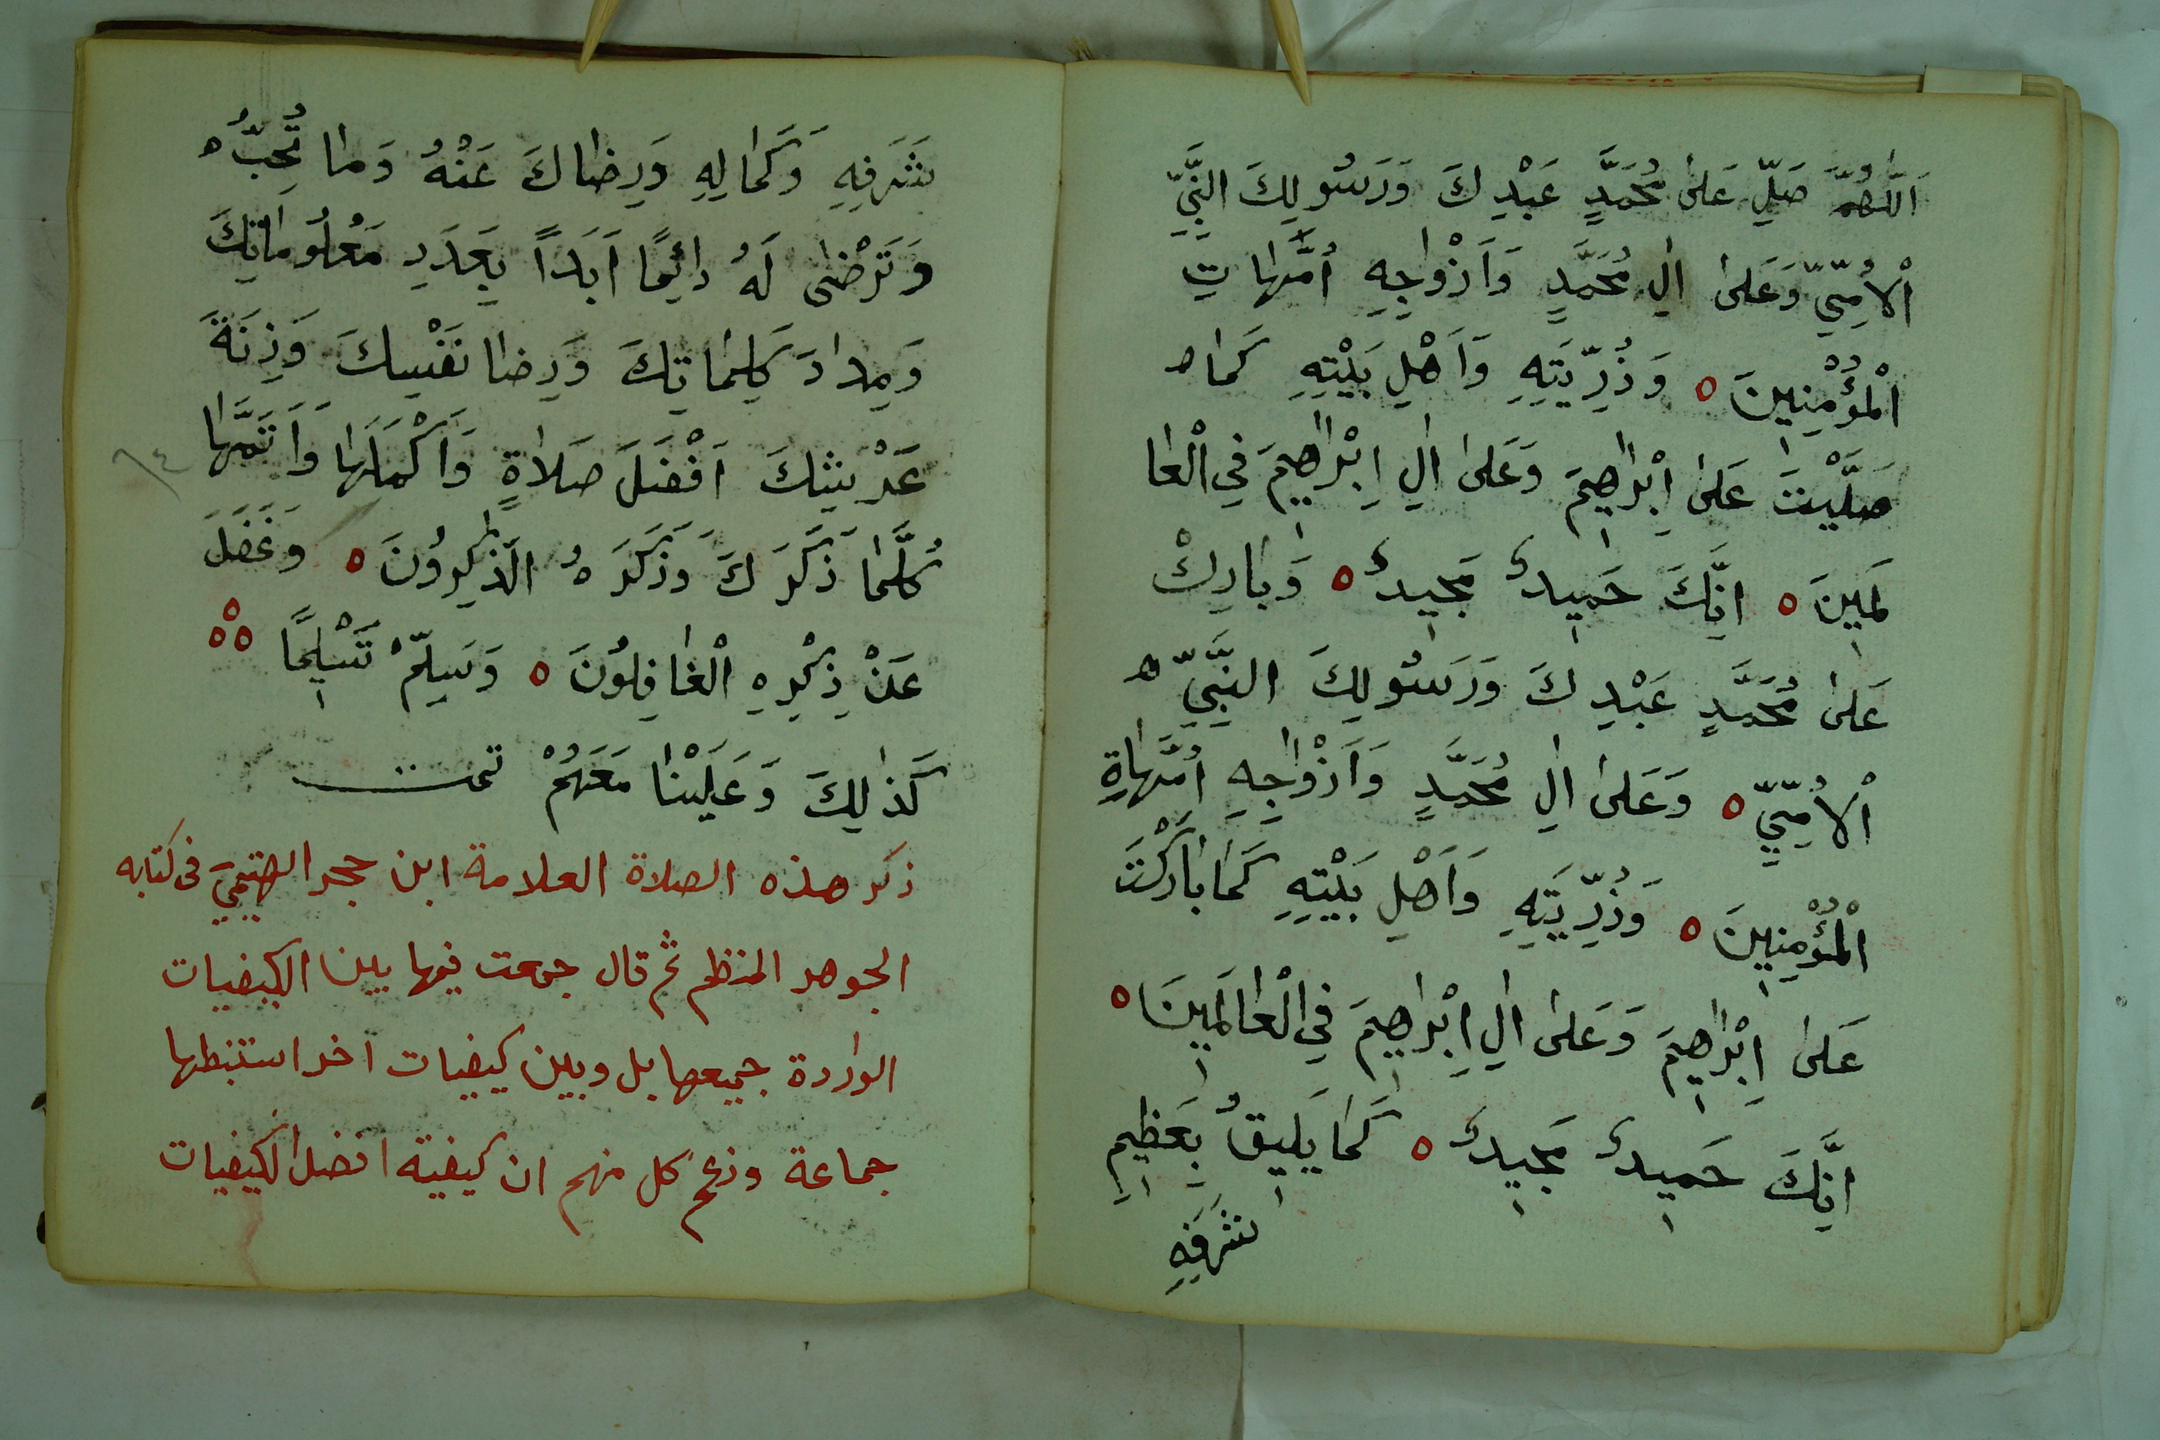 اَللّٰهُمَّ صَلِّ عَلىٰ مُحَمَّدٍ عَبْدِكَ وَرَسُولِكَ النَّبِيِّ
اْلاُمِّيِّ وَعَلىٰ اٰلِ مُحَمَّدٍ وَاَزْوٰاجِهِ اُمَّهٰاتِ
اْلمُؤْمِنِينَ ه وَذُرِّيَّتِهِ وَاَهْلِ بَيْتِهِ كَمٰا ه
صَلَّيْتَ عَلىٰ اِبْرٰاهِيمَ وَعَلىٰ اٰلِ اِبْرٰاهِيمَ فِي اْلعٰا
لَمِينَ ه اِنَّكَ حَمِيدٌ مَجِيدٌ ه وَبٰارِكْ
عَلىٰ مُحَمَّدٍ عَبْدِكَ وَرَسُولِكَ النَّبِيِّ ه
اْلاُمِّيِّ ه وَعَلىٰ اٰلِ مُحَمَّدٍ وَاَزْوٰاجِهِ اُمَّهٰاةِ
اْلمُؤْمِنِينَ ه وَذُرِّيَّتِهِ وَاَهْلِ بَيْتِهِ كَمٰا بٰارَكْتَ
عَلىٰ اِبْرٰاهِيمَ وَعَلىٰ اٰلِ اِبْرٰاهِيمَ فِي اْلعٰالَمِينَ ه
اِنَّكَ حَمِيدٌ مَجِيدٌ ه كَمٰا يَلِيقُ بِعَظِيمِ
شَرَفِهِ
شَرَفِهِ وَكَمٰالِهِ وَرِضٰاكَ عَنْهُ وَمٰا تُحِبُّ ه
وَتَرْضىٰ لَهُ دٰائِمًا اَبَدًا بِعَدَدِ مَعْلُومٰاتِكَ
وَمِدٰادَ كَلِمٰاتِكَ وَرِضٰا نَفْسِكَ وَزِنَةَ
عَرْشِكَ اَفْضَلَ صَلاٰةٍ وَاَكْمَلَهٰا وَاَتَمَّهٰا
كُلَّمٰا ذَكَرَكَ وَذَكَرَهُ الذّٰكِرُونَ ه وَغَفَلَ
عَنْ ذِكْرِهِ اْلغٰافِلُونَ ه وَسَلِّمْ تَسْلِيمًا ه ه ه
كَذٰلِكَ وَعَلَيْنٰا مَعَهُمْ تمت
ذكر هذه الصلاة العلامة ابن حجر الهيتميّ فى كتابه
الجوهر المنظم ثم قال جمعت فيها بين الكيفيات
الواردة جميعها بل وبين كيفيات آخر استنبطها
جماعة وزعم كل منهم ان كيفيته افضل الكيفيات